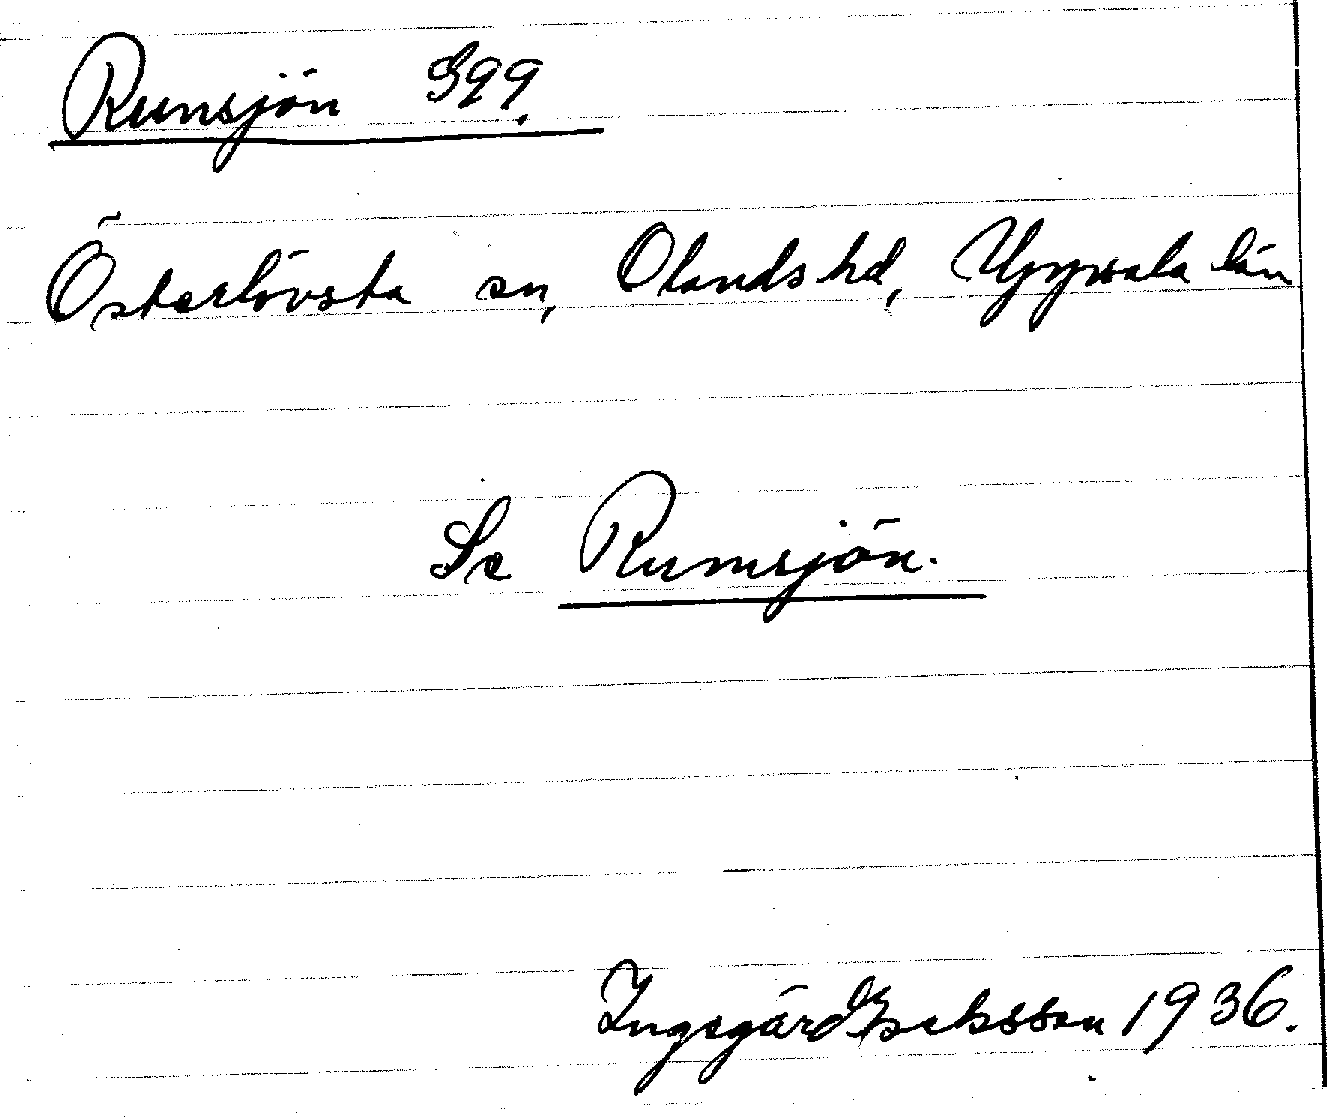 Runsjön Sqq.
Österlövsta sn, Olands hd, Uppsala län
Se Rumsjön.
Ingegärd Isaksson 1936.